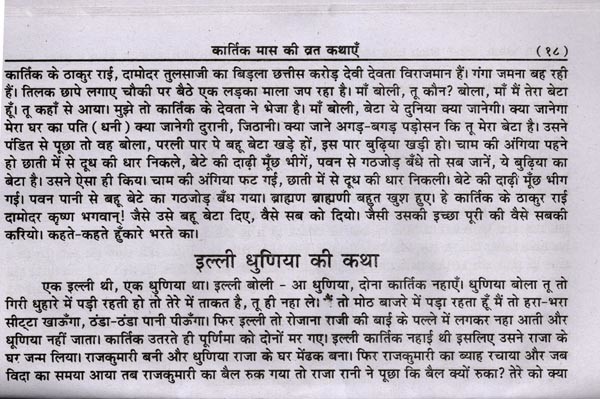 कार्तिक मास की व्रत कथाएँ (१८)
कार्तिक के ठाकुर राई, दामोदर तुलसाजी का बिड़ला छत्तीस करोड़ देवी देवता विराजमान हैं। गंगा जमना बह रही
हैं। तिलक छापे लगाए चौकी पर बैठे एक लड़का माला जप रहा है। माँ बोली, तू कौन? बोला, माँ मैं तेरा बेटा
हूँ। तू कहाँ से आया। मुझे तो कार्तिक के देवता ने भेजा है। माँ बोली, बेटा ये दुनिया क्या जानेगी। क्या जानेगा
मेरा घर का पति (धनी) क्या जानेगी दुरानी, जिठानी। क्या जाने अगड़-बगड़ पड़ोसन कि तू मेरा बेटा है। उसने
पंडित से पूछा तो वह बोला, परली पार पे बहू बेटा खड़े हों, इस पार बुढ़िया खड़ी हो। चाम की अंगिया पहने
हो छाती में से दूध की धार निकले, बेटे की दाढ़ी मूँछ भीगें, पवन से गठजोड़ बँधे तो सब जानें, ये बुढ़िया का
बेटा है। उसने ऐसा ही किय। चाम की अंगिया फट गई, छाती में से दूध की धार निकली। बेटे की दाढ़ी मूँछ भीग
गई। पवन पानी से बहू बेटे का गठजोड़ बँध गया। ब्राह्मण ब्राह्मणी बहुत खुश हुए। हे कार्तिक के ठाकुर राई
दामोदर कृष्ण भगवान्! जैसे उसे बहू बेटा दिए, वैसे सब को दियो। जैसी उसकी इच्छा पूरी की वैसे सबकी
करियो। कहते-कहते हुँकारे भरते का।
इल्ली धुणिया की कथा
एक इल्ली थी, एक धुणिया था। इल्ली बोली - आ धुणिया, दोना कार्तिक नहाएँ। धुणिया बोला तू तो
गिरी धुहारे में पड़ी रहती हो तो तेरे में ताकत है, तू ही नहा ले। मैं तो मोठ बाजरे में पड़ा रहता हूँ मैं तो हरा-भरा
सीट्टा खाऊँगा, ठंडा-ठंडा पानी पीऊँगा। फिर इल्ली तो रोजाना राजी की बाई के पल्ले में लगकर नहा आती और
धूणिया नहीं जाता। कार्तिक उतरते ही पूर्णिमा को दोनों मर गए। इल्ली कार्तिक नहाई थी इसलिए उसने राजा के
घर जन्म लिया। राजकुमारी बनी और धुणिया राजा के घर मेंढक बना। फिर राजकुमारी का ब्याह रचाया और जब
विदा का समया आया तब राजकुमारी का बैल रुक गया तो राजा रानी ने पूछा कि बैल क्यों रुका? तेरे को क्या